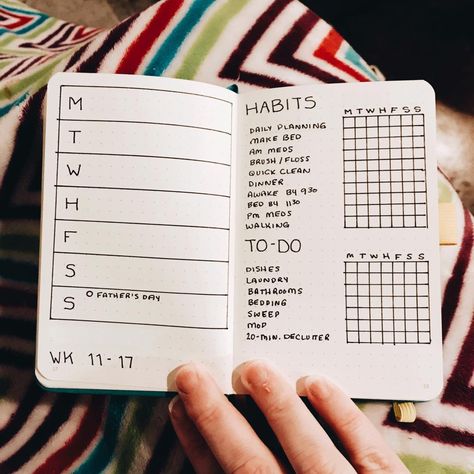 M
T
W
H
F
S
S O FATHER'S DAY
WK 11-17
HABITS
M T W H F S S
DAILY PLANNING
MAKE BED
AM MEDS
BRUSH/FLOSS
QUICK CLEAN
DINNER
AWAKE BY 930
BED BY 1130
PM MEDS
WALKING
TO-DO
M T W H F S S
DISHES
LAUNDRY
BATHROOMS
BEDDING
SWEEP
MOP
20-MIN. DECLUTTER